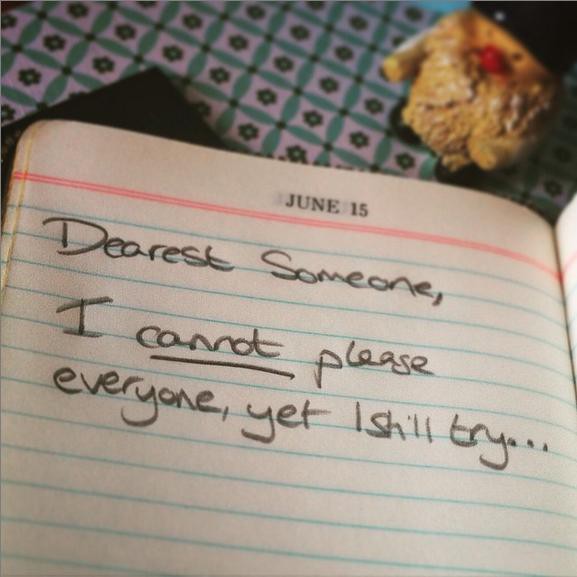 JUNE 15
Dearest Someone,
I cannot please
everyone, yet I still try...